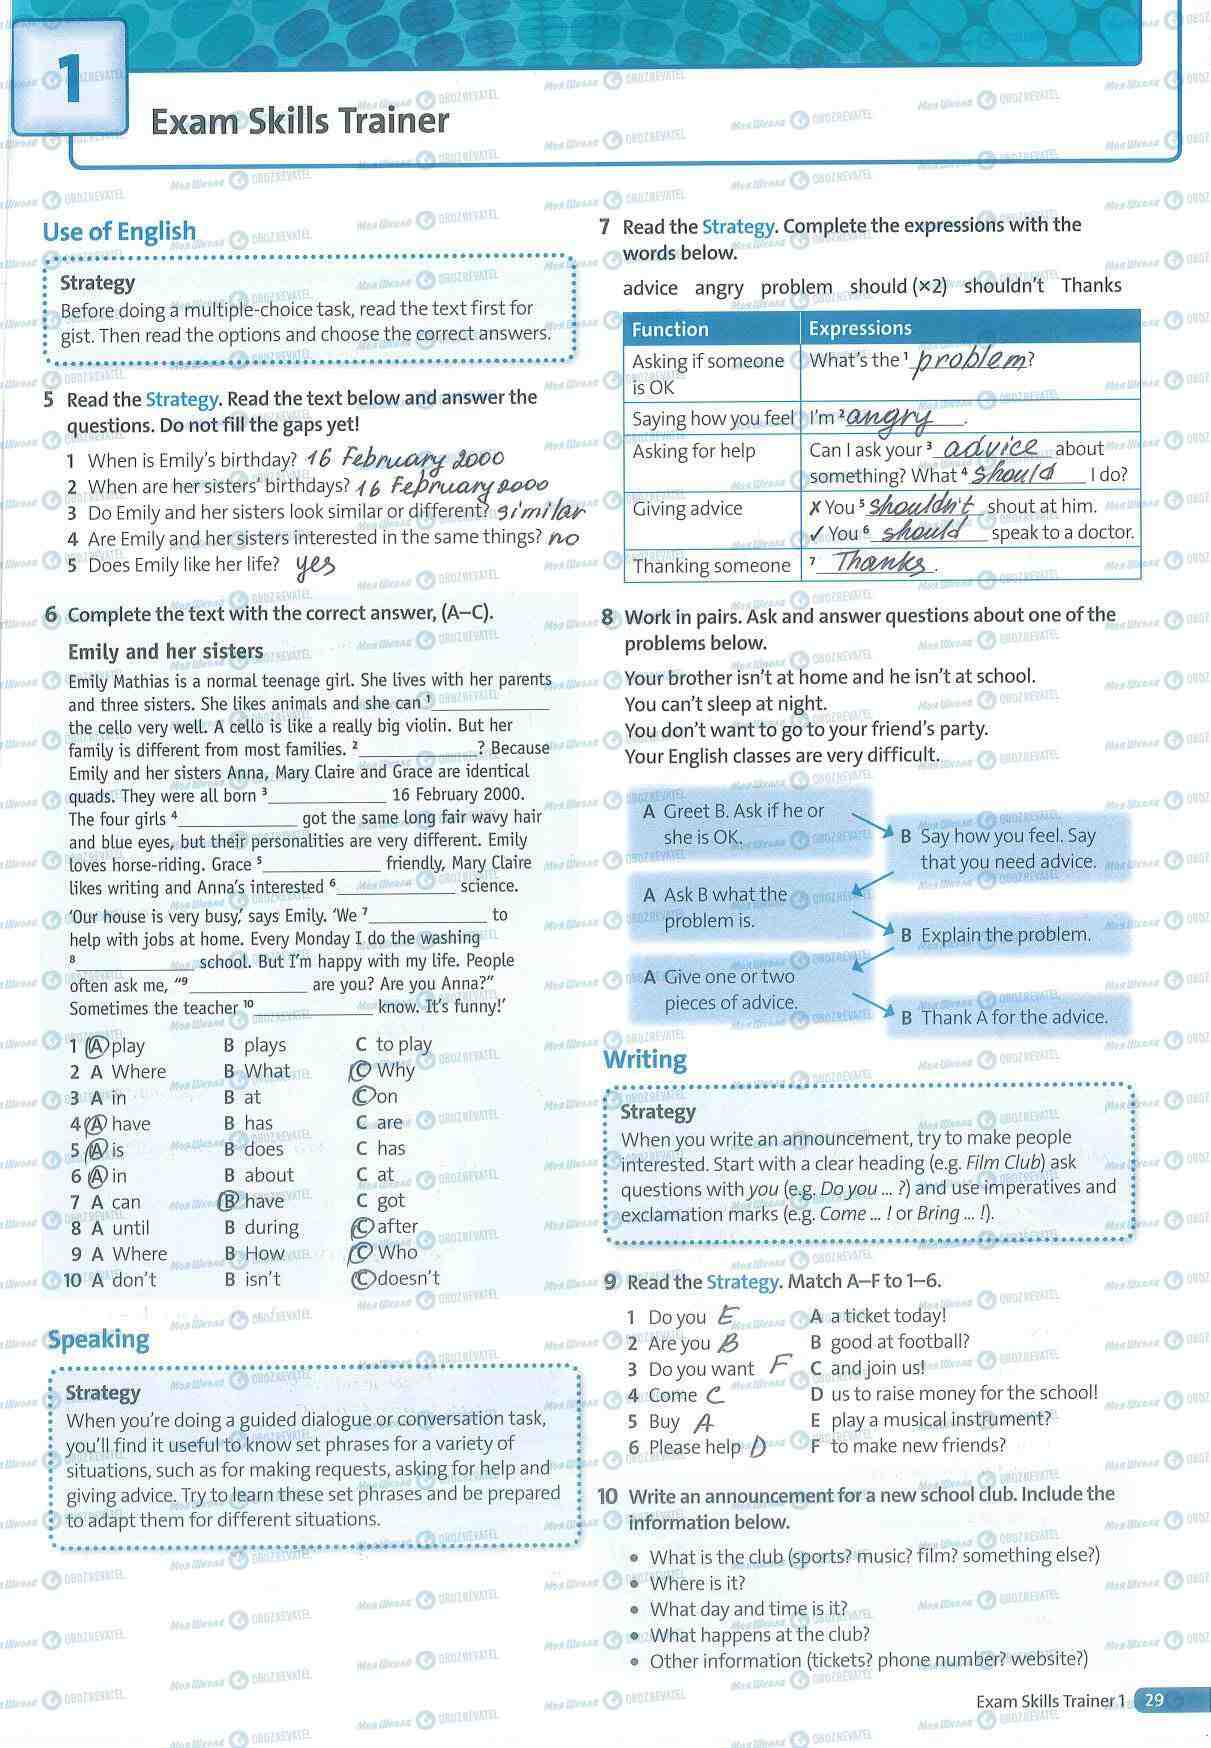 1
Exam Skills Trainer
Use of English
Strategy
Before doing a multiple-choice task, read the text first for
gist. Then read the options and choose the correct answers.
5 Read the Strategy. Read the text below and answer the
questions. Do not fill the gaps yet!
1 When is Emily's birthday? 16 February 2000
2 When are her sisters' birthdays? 16 February 2000
3 Do Emily and her sisters look similar or different? similar
4 Are Emily and her sisters interested in the same things? no
5 Does Emily like her life? yes
6 Complete the text with the correct answer, (A–C).
Emily and her sisters
Emily Mathias is a normal teenage girl. She lives with her parents
and three sisters. She likes animals and she can ¹____________
the cello very well. A cello is like a really big violin. But her
family is different from most families. ²____________? Because
Emily and her sisters Anna, Mary Claire and Grace are identical
quads. They were all born ³____________ 16 February 2000.
The four girls ⁴____________ got the same long fair wavy hair
and blue eyes, but their personalities are very different. Emily
loves horse-riding. Grace ⁵____________ friendly, Mary Claire
likes writing and Anna's interested ⁶____________ science.
'Our house is very busy,' says Emily. 'We ⁷____________ to
help with jobs at home. Every Monday I do the washing
⁸____________ school. But I'm happy with my life. People
often ask me, "⁹____________ are you? Are you Anna?"
Sometimes the teacher ¹⁰____________ know. It's funny!'
1 A play B plays C to play
2 A Where B What C Why
3 A in B at C on
4 A have B has C are
5 A is B does C has
6 A in B about C at
7 A can B have C got
8 A until B during C after
9 A Where B How C Who
10 A don't B isn't C doesn't
Speaking
Strategy
When you're doing a guided dialogue or conversation task,
you'll find it useful to know set phrases for a variety of
situations, such as for making requests, asking for help and
giving advice. Try to learn these set phrases and be prepared
to adapt them for different situations.
7 Read the Strategy. Complete the expressions with the
words below.
advice angry problem should (×2) shouldn't Thanks
Function Expressions
Asking if someone What's the ¹ problem?
is OK
Saying how you feel I'm ² angry.
Asking for help Can I ask your ³ advice about
something? What ⁴ should I do?
Giving advice ✗ You ⁵ shouldn't shout at him.
✓ You ⁶ should speak to a doctor.
Thanking someone ⁷ Thanks.
8 Work in pairs. Ask and answer questions about one of the
problems below.
Your brother isn't at home and he isn't at school.
You can't sleep at night.
You don't want to go to your friend's party.
Your English classes are very difficult.
A Greet B. Ask if he or
she is OK.
B Say how you feel. Say
that you need advice.
A Ask B what the
problem is.
B Explain the problem.
A Give one or two
pieces of advice.
B Thank A for the advice.
Writing
Strategy
When you write an announcement, try to make people
interested. Start with a clear heading (e.g. Film Club) ask
questions with you (e.g. Do you ... ?) and use imperatives and
exclamation marks (e.g. Come ... ! or Bring ... !).
9 Read the Strategy. Match A–F to 1–6.
1 Do you E A a ticket today!
2 Are you B B good at football?
3 Do you want F C and join us!
4 Come C D us to raise money for the school!
5 Buy A E play a musical instrument?
6 Please help D F to make new friends?
10 Write an announcement for a new school club. Include the
information below.
• What is the club (sports? music? film? something else?)
• Where is it?
• What day and time is it?
• What happens at the club?
• Other information (tickets? phone number? website?)
Exam Skills Trainer 1 29
Моя Школа OBOZREVATEL